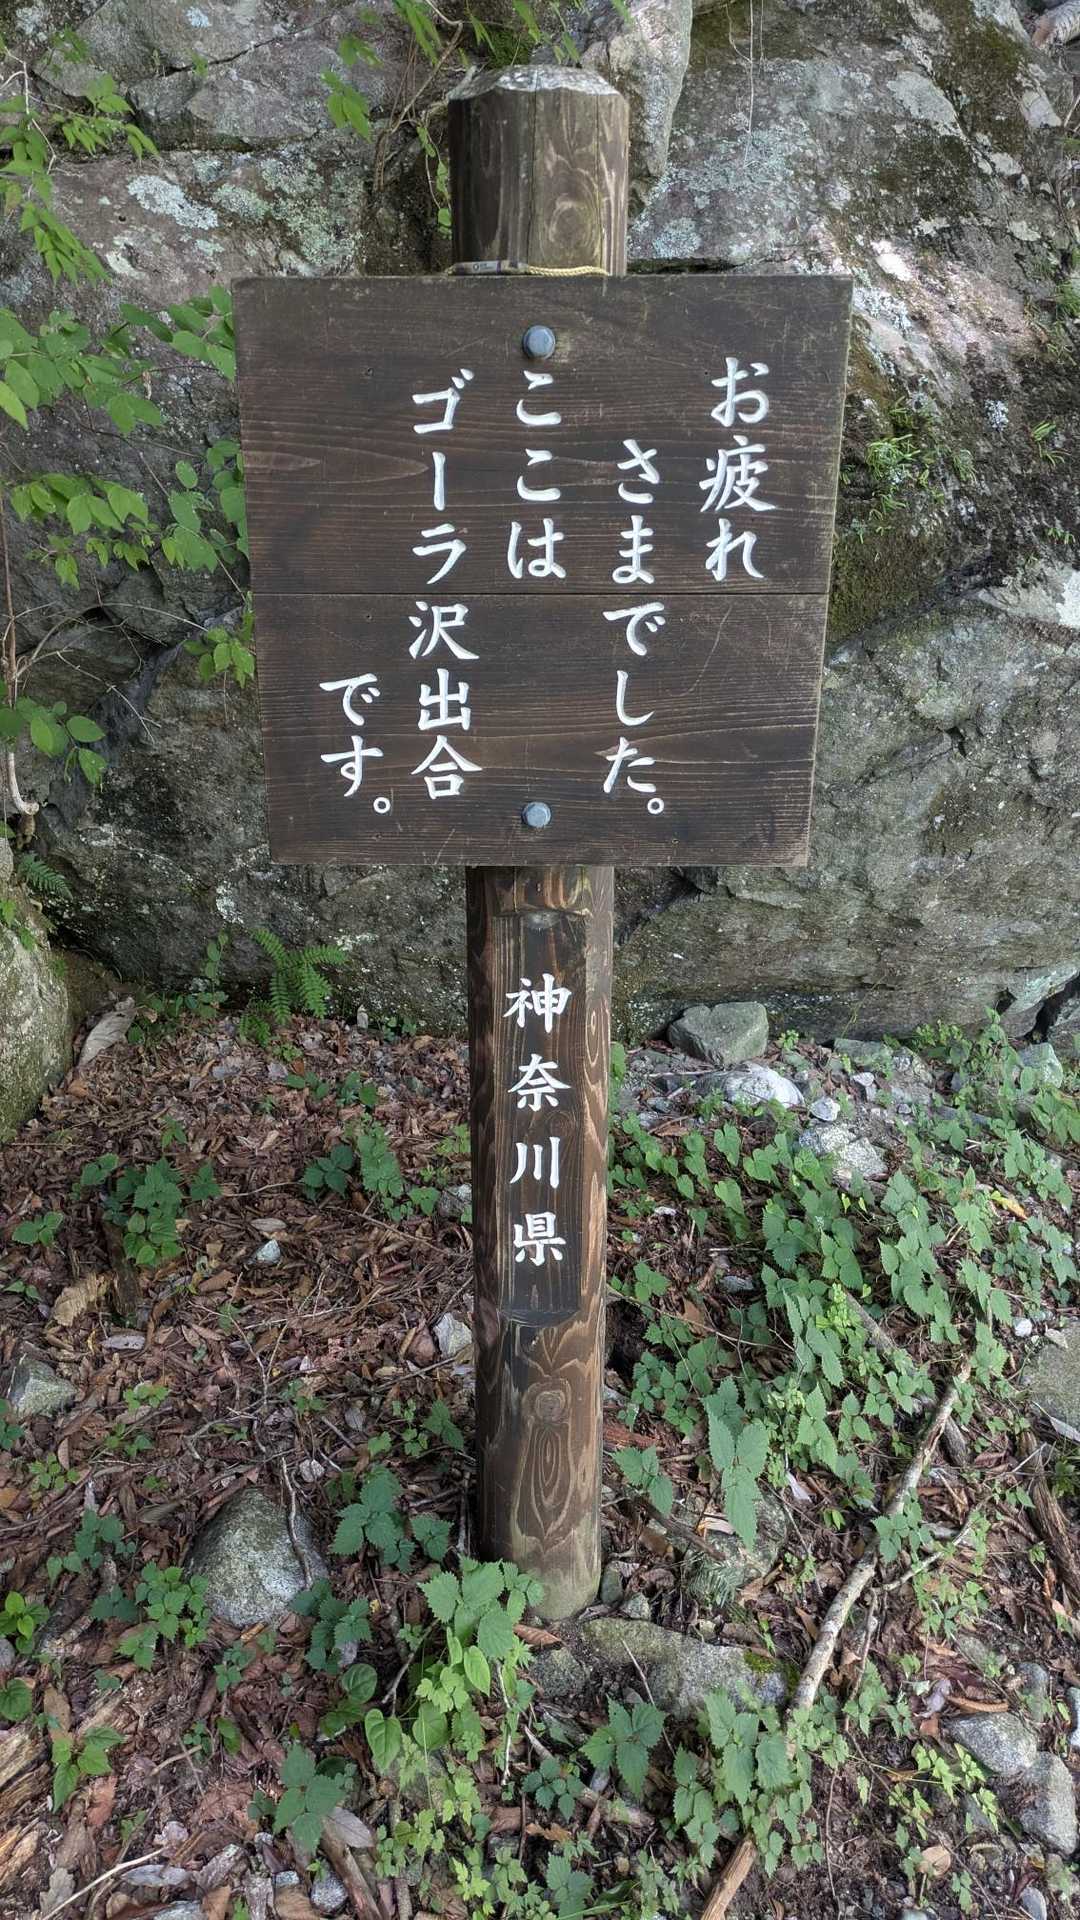 お疲れ
さまでした。
ここは
ゴーラ沢出合
です。
神奈川県